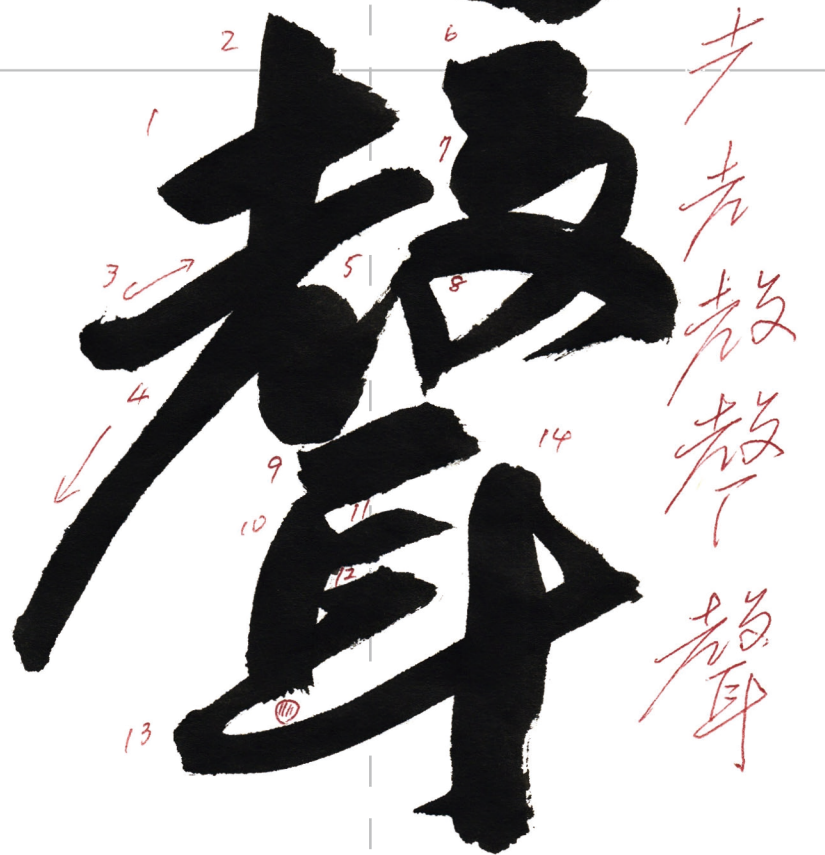 聲
1
2
3
4
5
6
7
8
9
10
11
12
13
14
聲